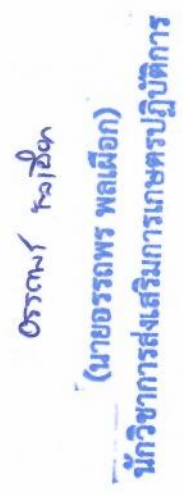 อรรถพร พลเผือก
(นายอรรถพร พลเผือก)
นักวิชาการส่งเสริมการเกษตรปฏิบัติการ